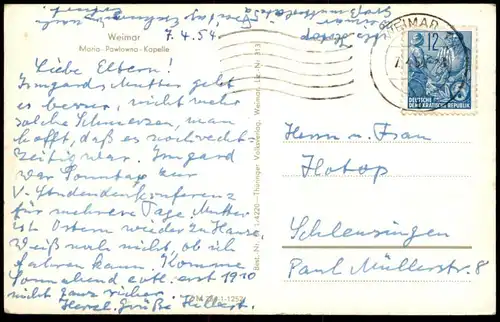 Weimar
Maria-Pawlowna-Kapelle
7.4.54
Liebe Eltern!
Irmgards Mutter geht
es besser, nicht mehr
solche Schmerzen, man
hofft, daß es noch recht-
zeitig war. Irmgard
war Sonntag zur
V. Studendenkonferenz
für mehrere Tage. Mutter
ist Ostern wieder zu Hause
Weiß noch nicht, ob ich
fahren kann. Komme
Sonnabend evtl. erst 19 10
nicht ganz sicher.
Herzl. Grüße Helbert
Thüringer Volksverlag, Weimar, Liz. Nr. 313
WEIMAR
12
DEUTSCHE
DEMOKRATISCHE REPUBLIK
Herrn u. Frau
Hotop
Schleusingen
Paul Müllerstr. 8